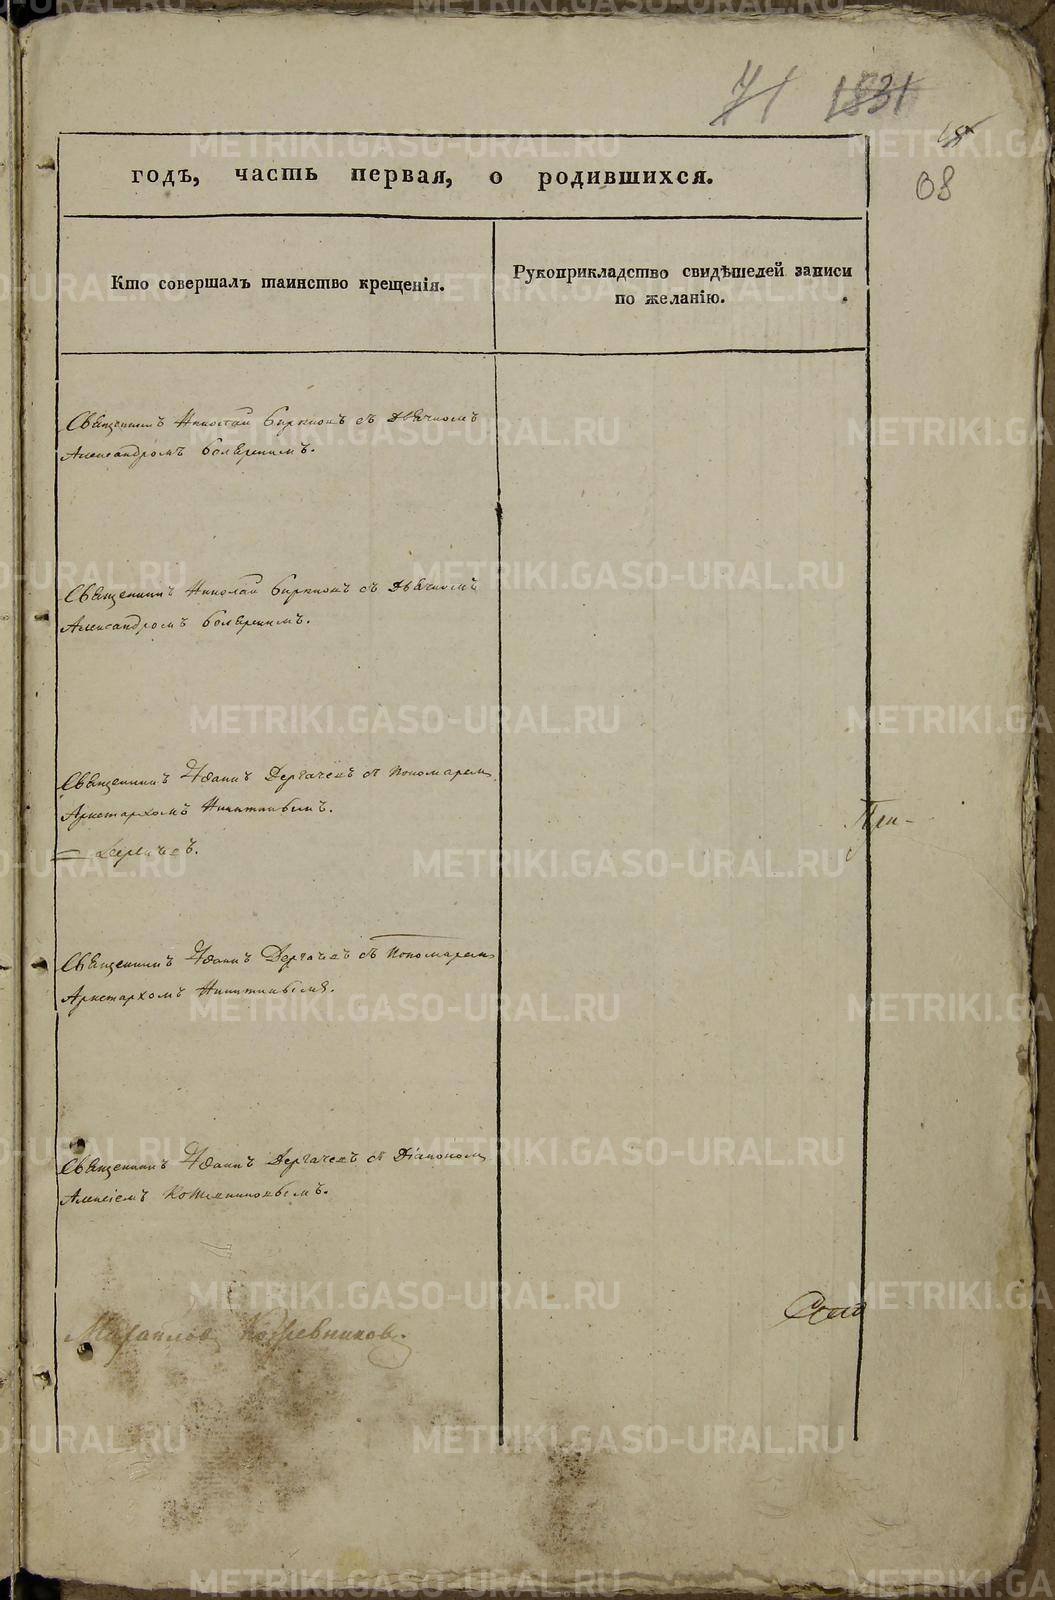 71 1831
68
годъ, часть первая, о родившихся.
Кто совершалъ таинство крещенія.
Рукоприкладство свидѣтелей записи
по желанію.
Священникъ Николай Бирюковъ съ Дьячкомъ
Александромъ
Священникъ Николай Бирюковъ съ Дьячкомъ
Александромъ
Священникъ Іоаннъ Дергачевъ съ Пономаремъ
Аристархомъ Никитинымъ.
Священникъ Іоаннъ Дергачевъ съ Пономаремъ
Аристархомъ Никитинымъ.
Священникъ Іоаннъ Дергачевъ съ Діакономъ
Алексіемъ Кожевниковымъ.
Михаиловъ Кожевниковъ.
METRIKI.GASO-URAL.RU